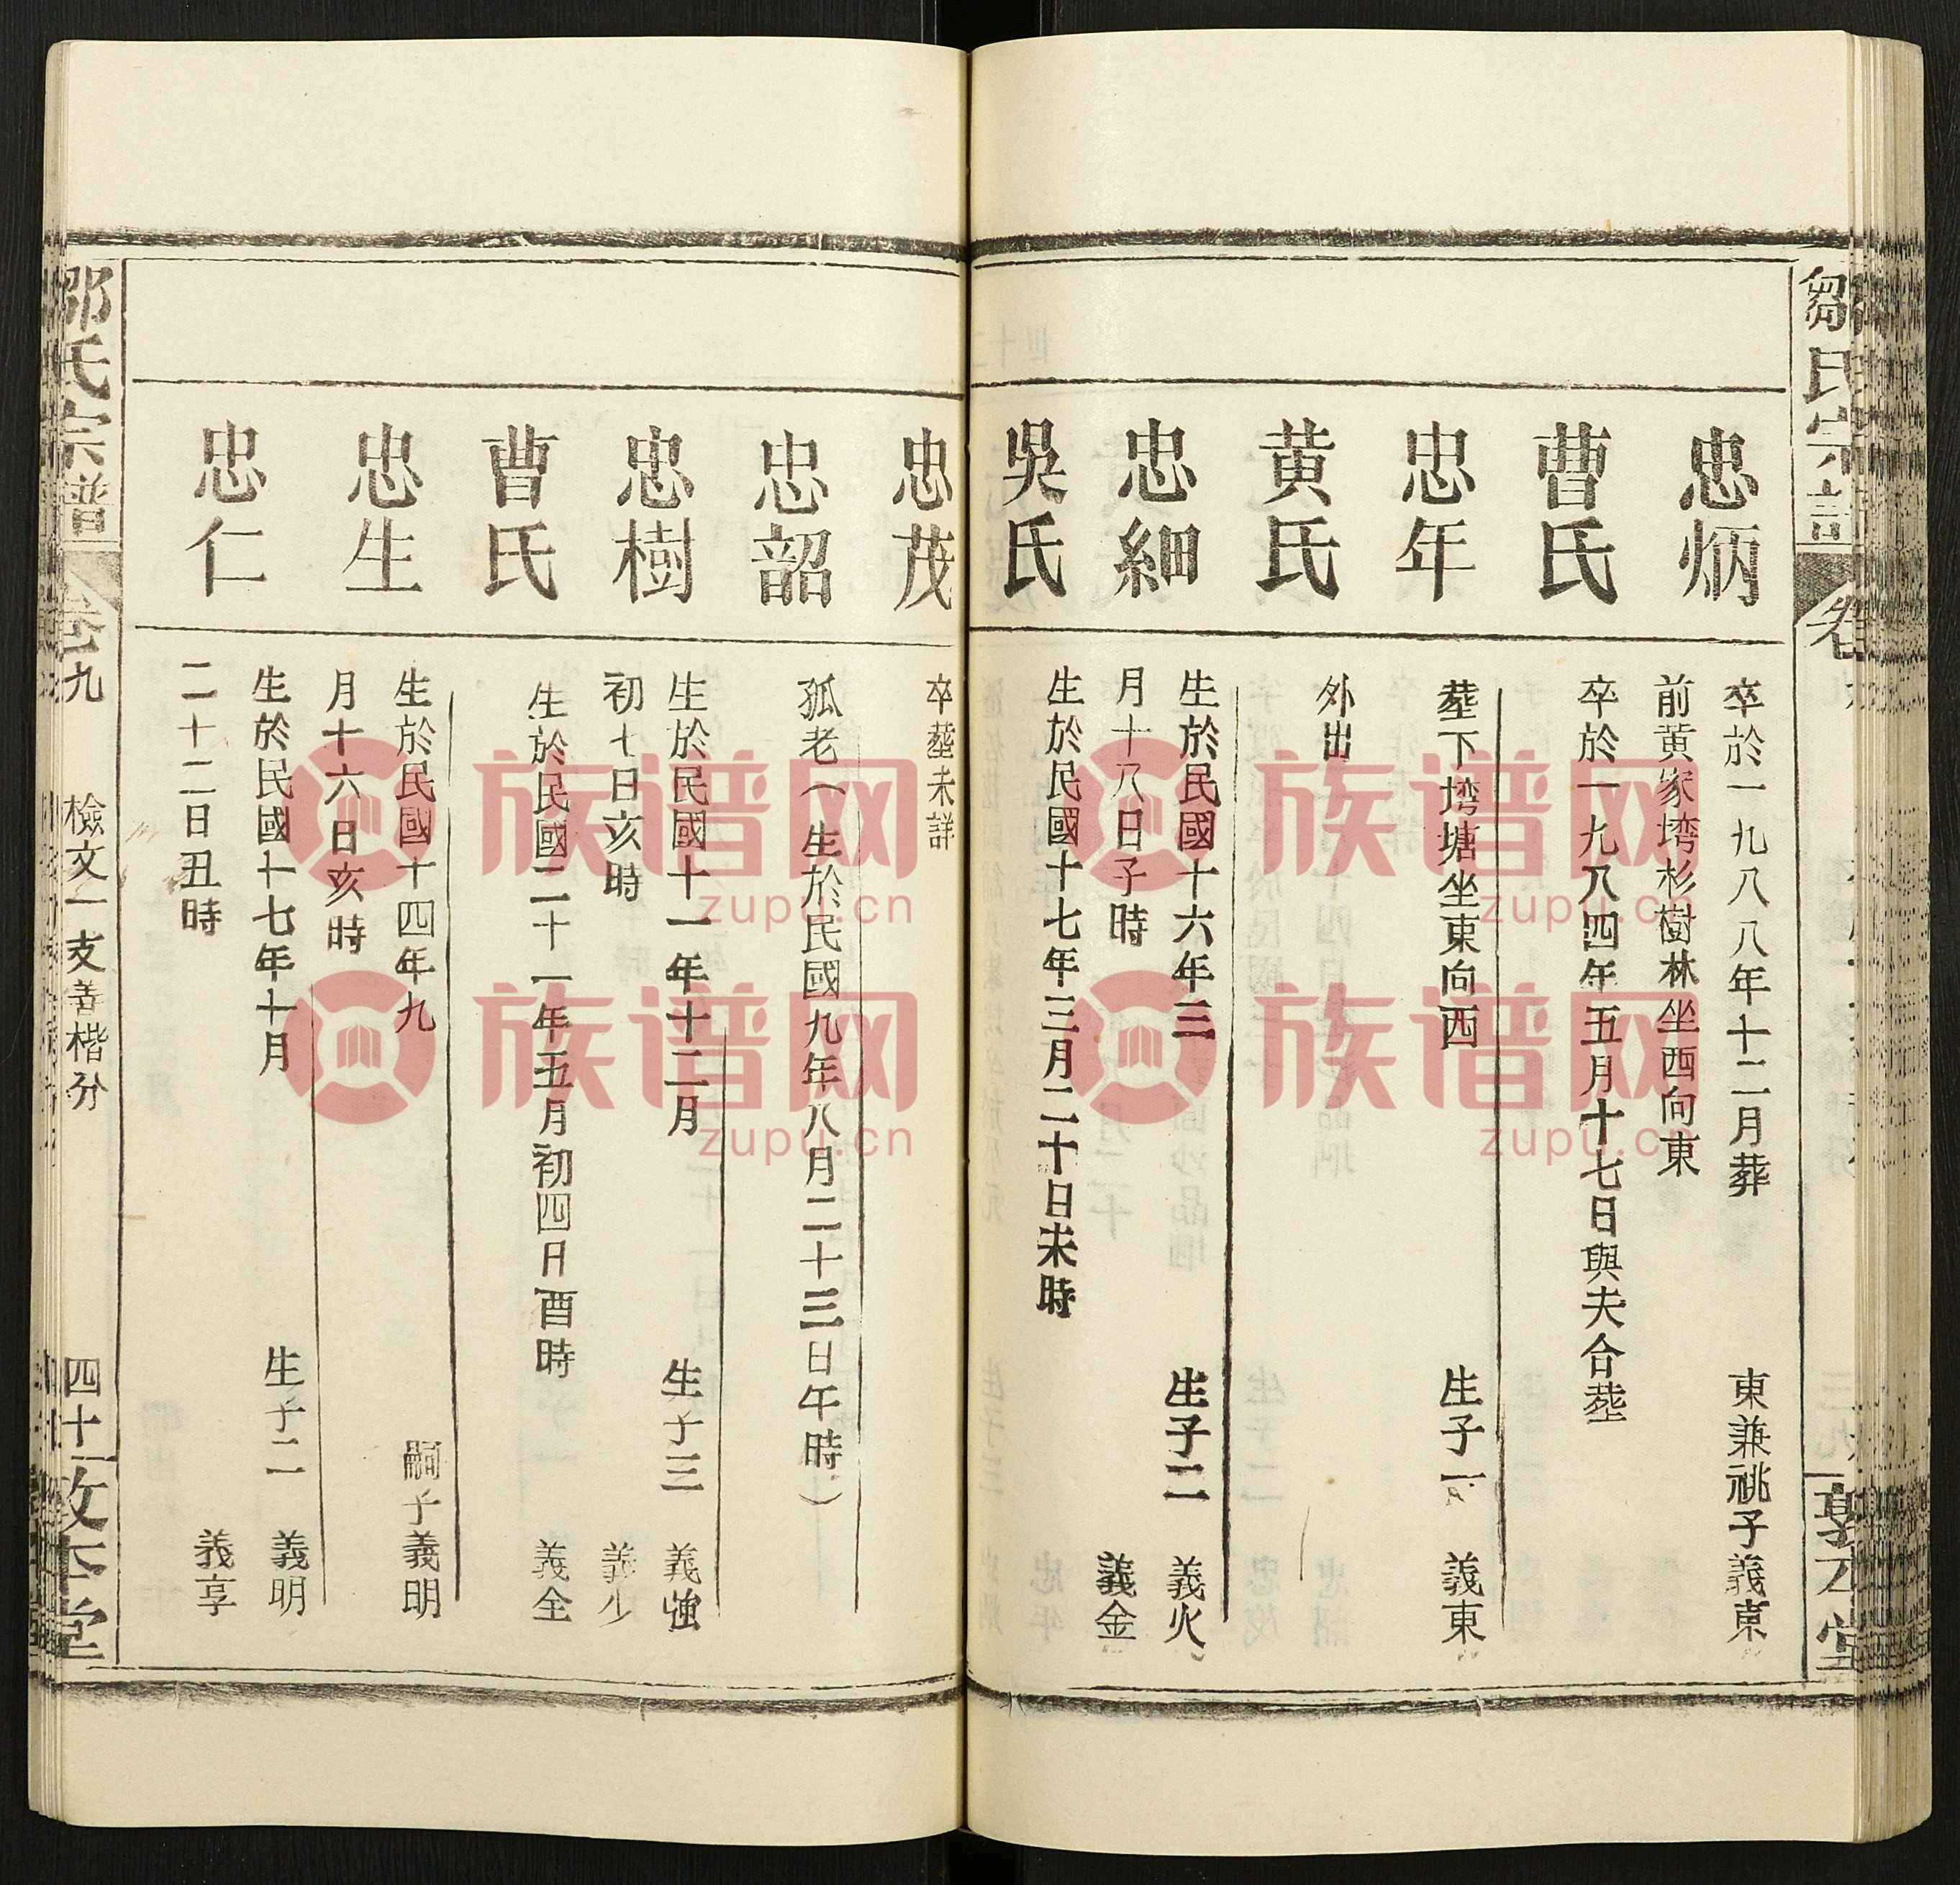 鄒氏宗譜
卷
忠炳
卒於一九八八年十二月葬
東兼祧子義東
前黄家塆杉樹林坐西向東
曹氏
卒於一九八四年五月十七日與夫合塟
忠年
塟下塆塘坐東向西
生子一
義東
黄氏
外出
忠細
生於民國十六年三
生子二
義火
月十八日子時
義金
吳氏
生於民國十七年三月二十日未時
敦本堂
忠茂
卒塟未詳
忠韶
孤老（生於民國九年八月二十三日午時）
忠樹
生於民國十一年十二月
生子三
義強
初七日亥時
義少
曹氏
生於民國二十一年五月初四日酉時
義全
忠生
生於民國十四年九
嗣子義明
月十六日亥時
忠仁
生於民國十七年十月
生子二
義明
二十二日丑時
義享
鄒氏宗譜
卷九
檢文一支善楷分
四十
敦本堂
族谱网
zupu.cn
族谱网
zupu.cn
族谱网
zupu.cn
族谱网
zupu.cn